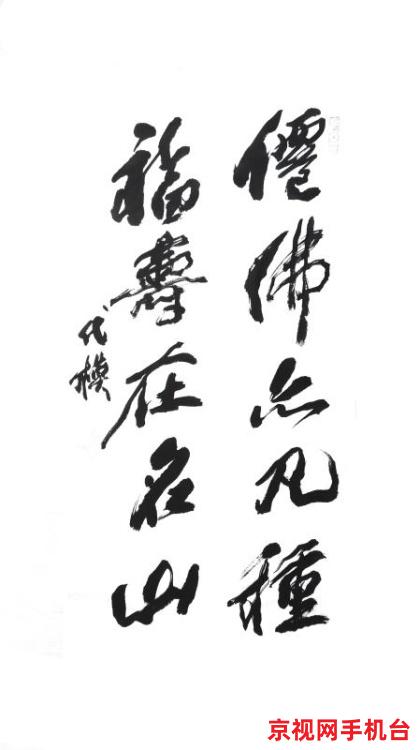 僊佛亦凡種
福壽在名山
代模
京视网手机台